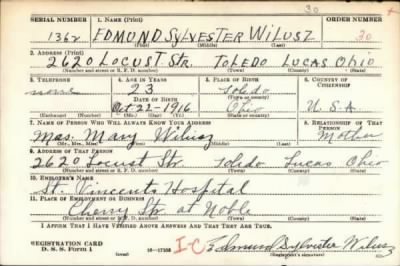 30
SERIAL NUMBER 1. NAME (Print) ORDER NUMBER
1362 EDMUND SYLVESTER WILUSZ 30
(First) (Middle) (Last)
2. ADDRESS (Print)
2620 LOCUST Str. TOLEDO LUCAS OHIO
(Number and street or R. F. D. number) (Town) (County) (State)
3. TELEPHONE 4. AGE IN YEARS 5. PLACE OF BIRTH 6. COUNTRY OF CITIZENSHIP
none 23 Toledo
DATE OF BIRTH (Town or county)
Oct 22-1916 Ohio U.S.A
(Exchange) (No.) (Mo.) (Day) (Yr.) (State or country)
7. NAME OF PERSON WHO WILL ALWAYS KNOW YOUR ADDRESS 8. RELATIONSHIP OF THAT PERSON
Mrs. Mary Wilusz Mother
(Mr., Mrs., Miss) (First) (Middle) (Last)
9. ADDRESS OF THAT PERSON
2620 Locust Str Toledo Lucas Ohio
(Number and street or R. F. D. number) (Town) (County) (State)
10. EMPLOYER'S NAME
St. Vincents Hospital
11. PLACE OF EMPLOYMENT OR BUSINESS
Cherry Str at Noble
(Number and street or R. F. D. number) (Town) (County) (State)
I AFFIRM THAT I HAVE VERIFIED ABOVE ANSWERS AND THAT THEY ARE TRUE.
REGISTRATION CARD
D. S. S. Form 1 (over) 16-17105 I-C Edmund Sylvester Wilusz
(Registrant's signature)